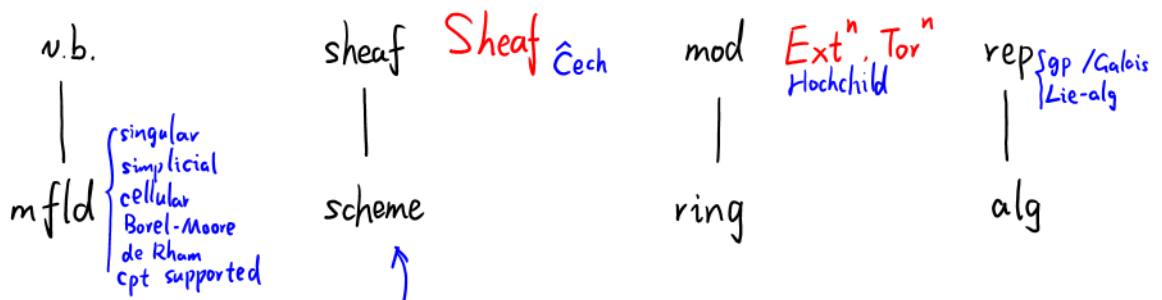 v.b.
sheaf Sheaf Ĉech
mod Ext^n, Tor^n
Hochchild
rep { gp / Galois
Lie-alg
mfld { singular
simplicial
cellular
Borel-Moore
de Rham
cpt supported
scheme
ring
alg